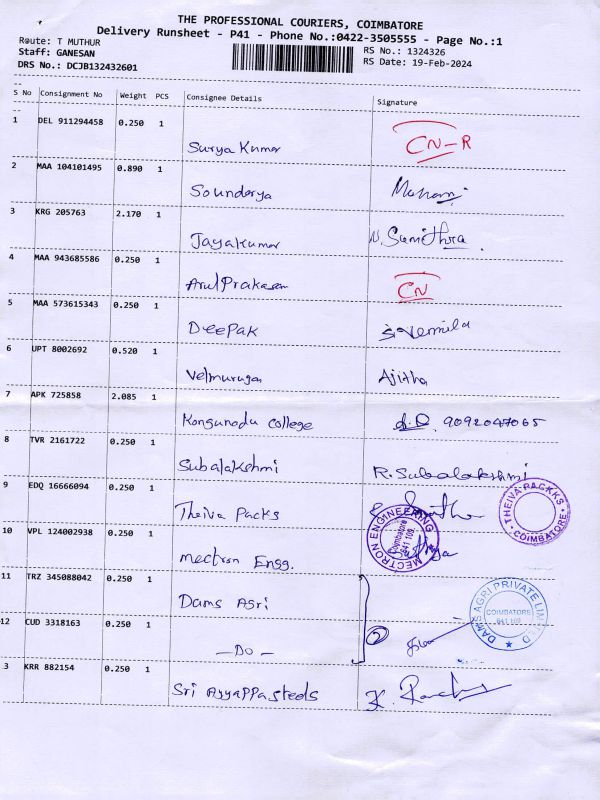 THE PROFESSIONAL COURIERS, COIMBATORE
Delivery Runsheet - P41 - Phone No.:0422-3505555 - Page No.:1
Route: T MUTHUR
RS No.: 1324326
Staff: GANESAN
RS Date: 19-Feb-2024
DRS No.: DCJB132432601
S No Consignment No Weight PCS Consignee Details Signature
1 DEL 911294458 0.250 1
Surya Kumar CN-R
2 MAA 104101495 0.890 1
Soundarya
3 KRG 205763 2.170 1
Jayakumar N. Sumithra
4 MAA 943685586 0.250 1
Arul Prakasam CN
5 MAA 573615343 0.250 1
Deepak
6 UPT 8002692 0.520 1
Velmurugan Ajitha
7 APK 725858 2.085 1
Kongunadu College 9092047065
8 TVR 2161722 0.250 1
Subalakshmi R. Subalakshmi
9 EDQ 16666094 0.250 1
Theiva Packs
THEIVA PACKKS COIMBATORE
10 VPL 124002938 0.250 1
Mectron Engg.
MECTRON ENGINEERING Coimbatore 641 109
11 TRZ 345088042 0.250 1
Dams Agri
12 CUD 3318163 0.250 1
-Do- 2
DAMS AGRI PRIVATE LIMITED COIMBATORE 641 109
3 KRR 882154 0.250 1
Sri Ayyappa steels